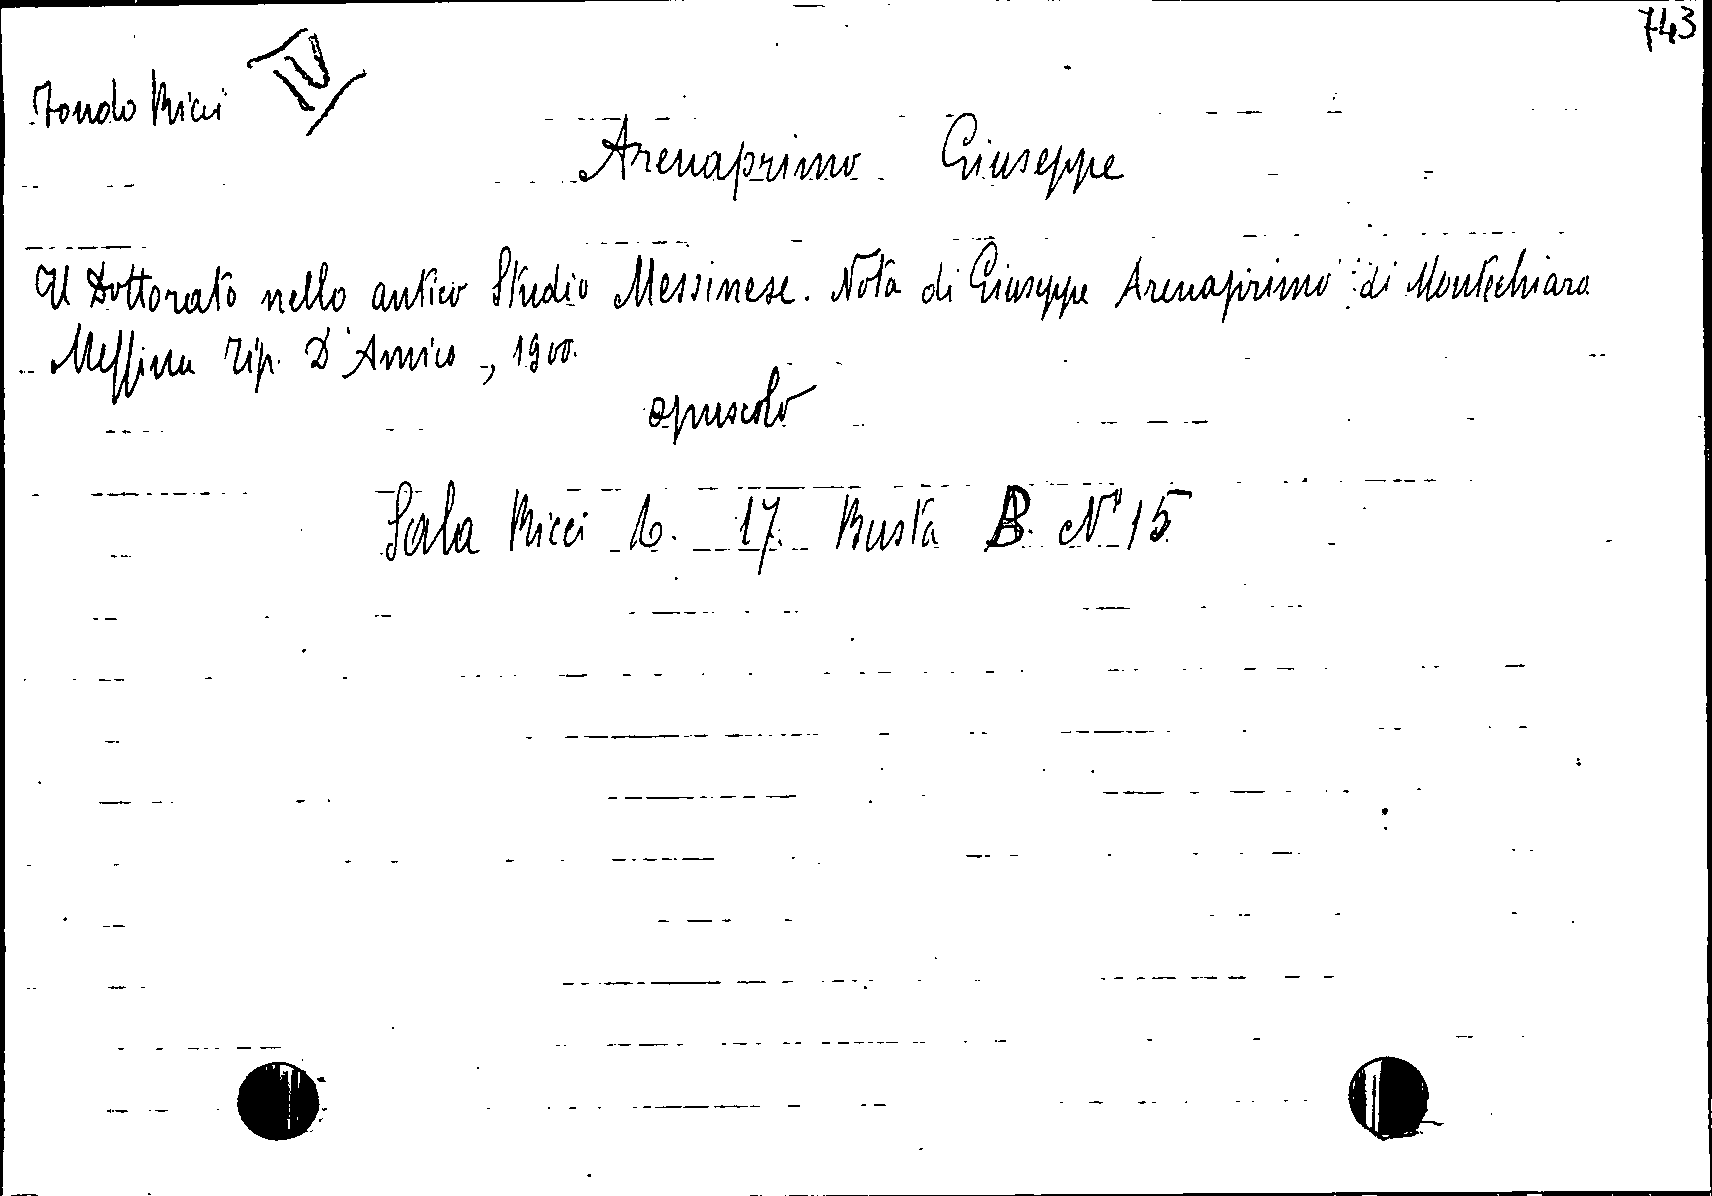 743
Fondo Ricci IV
Arenaprimo Giuseppe
Il Dottorato nello antico Studio Messinese. Nota di Giuseppe Arenaprimo di Montechiaro
Messina Tip. D'Amico, 1900.
opuscolo
Sala Ricci L. 17. Busta B. N° 15